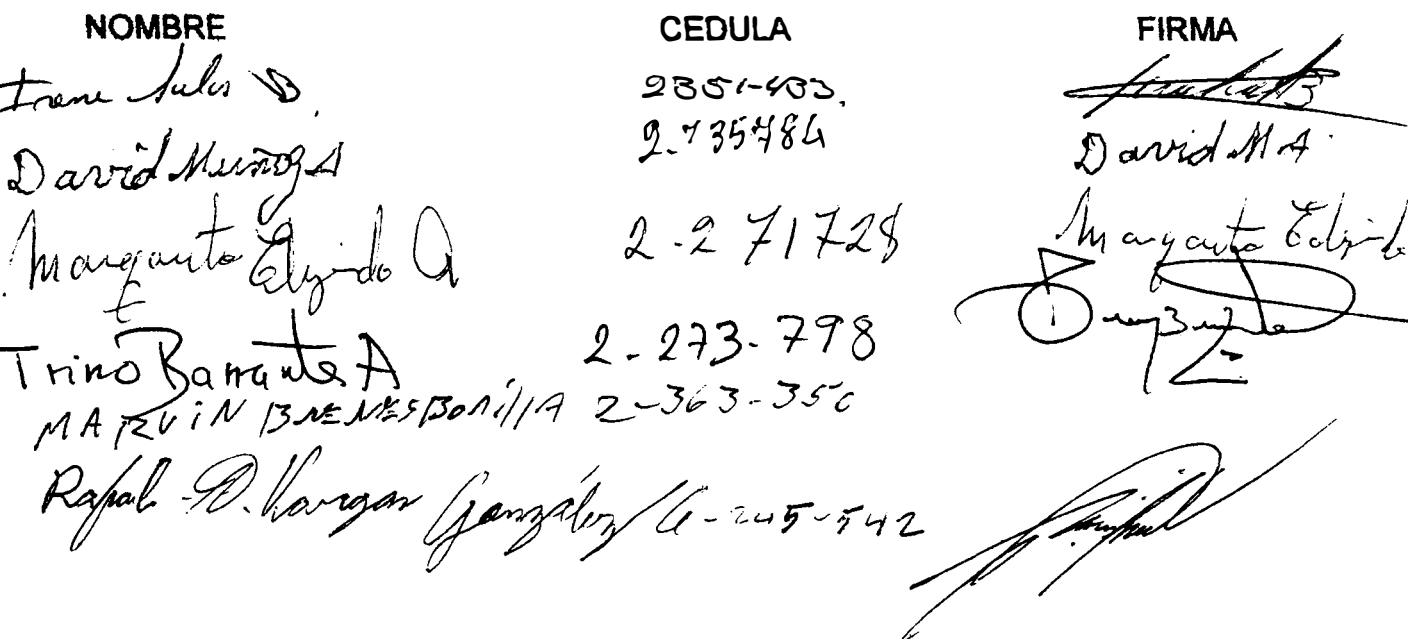 NOMBRE CEDULA FIRMA
Irene 2351-433.
David Muñoz A 2-735784 David M A
Margarita Elizondo Q 2-271728 Margarita Elizondo
Trino Barrantes A 2-273-798
MARVIN BRENES BONILLA 2-363-350
Rafael D. Vargas González 6-245-542